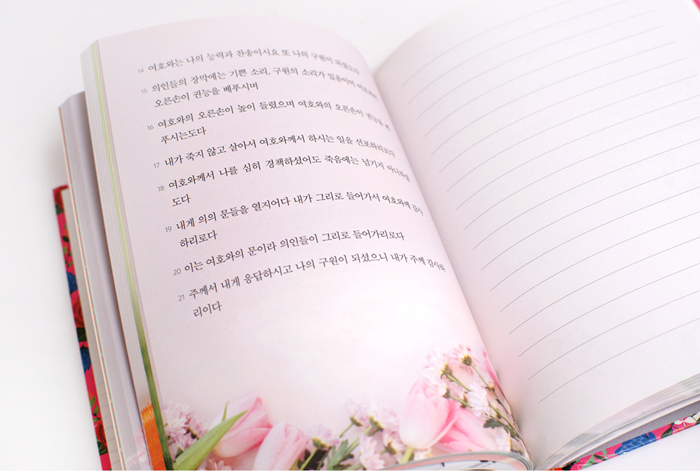 14 여호와는 나의 능력과 찬송이시요 또 나의 구원이
15 의인들의 장막에는 기쁜 소리, 구원의 소리가 있음이여 여호와의
오른손이 권능을 베푸시며
16 여호와의 오른손이 높이 들렸으며 여호와의 오른손이 권능을 베
푸시는도다
17 내가 죽지 않고 살아서 여호와께서 하시는 일을 선포하리로다
18 여호와께서 나를 심히 경책하셨어도 죽음에는 넘기지 아니하셨
도다
19 내게 의의 문들을 열지어다 내가 그리로 들어가서 여호와께 감사
하리로다
20 이는 여호와의 문이라 의인들이 그리로 들어가리로다
21 주께서 내게 응답하시고 나의 구원이 되셨으니 내가 주께 감사하
리이다